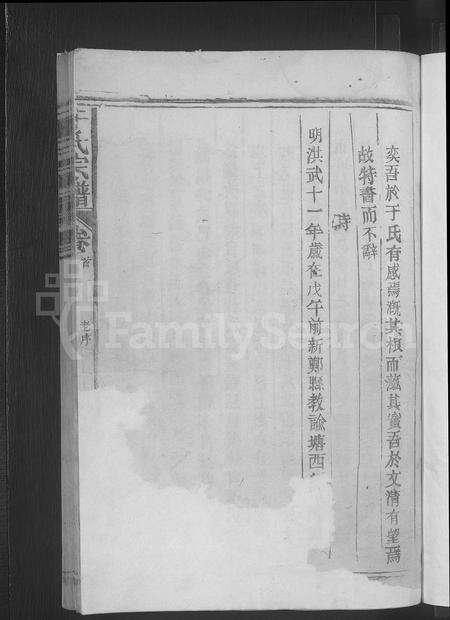 奕吾於于氏有感焉漑其根而滋其實吾於文清有望焉
故特書而不辭
時
明洪武十一年歲在戊午前新鄭縣教諭塘西
于氏宗譜 卷首 老序
FamilySearch